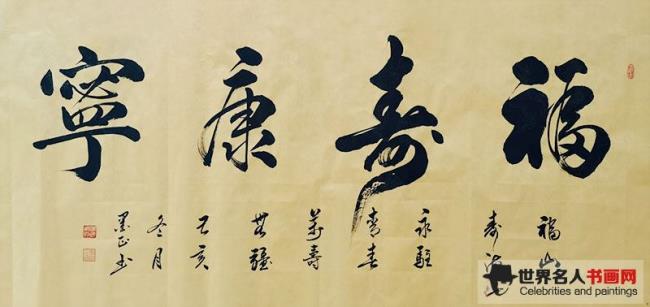 福寿康寧
福山
寿海
永駐
青春
萬壽
無疆
己亥
冬月
墨正书
世界名人书画网
Celebrities and paintings